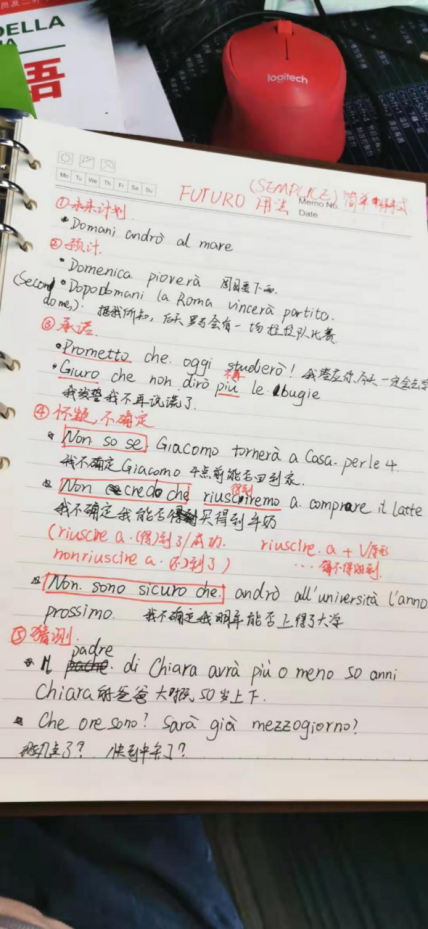 DELLA
语
logitech
Mo Tu We Th Fr Sa Su
Memo No.
Date
FUTURO (SEMPLICE) 简单
用法
①未来计划
• Domani andrò al mare
②预计
• Domenica pioverà 周日要下雨
• Dopodomani la Roma vincerà partito.
(Second
do me):据我所知,后天罗马会有一场
③承诺
• Prometto che oggi studierò! 我答应你,今天一定会
• Giuro che non dirò più le bugie
不再
我发誓我不再说谎了
④怀疑,不确定
Non so se Giacomo tornerà a casa per le 4.
我不确定Giacomo 4点前能否回到家.
Non credo che riusciremo a comprare il latte
得到
我不确定我能否买得到牛奶
(riuscire a. (得)到了/成功. riuscire. a + V原形
non riuscire a. 不到了)
Non sono sicuro che. andrò all'università l'anno
prossimo. 我不确定我明年能否上得了大学
⑤猜测
padre
Il di Chiara avrà più o meno 50 anni
Chiara的爸爸大概50岁上下.
Che ore sono? Sarà già mezzogiorno?
几点了? 快到中午了?